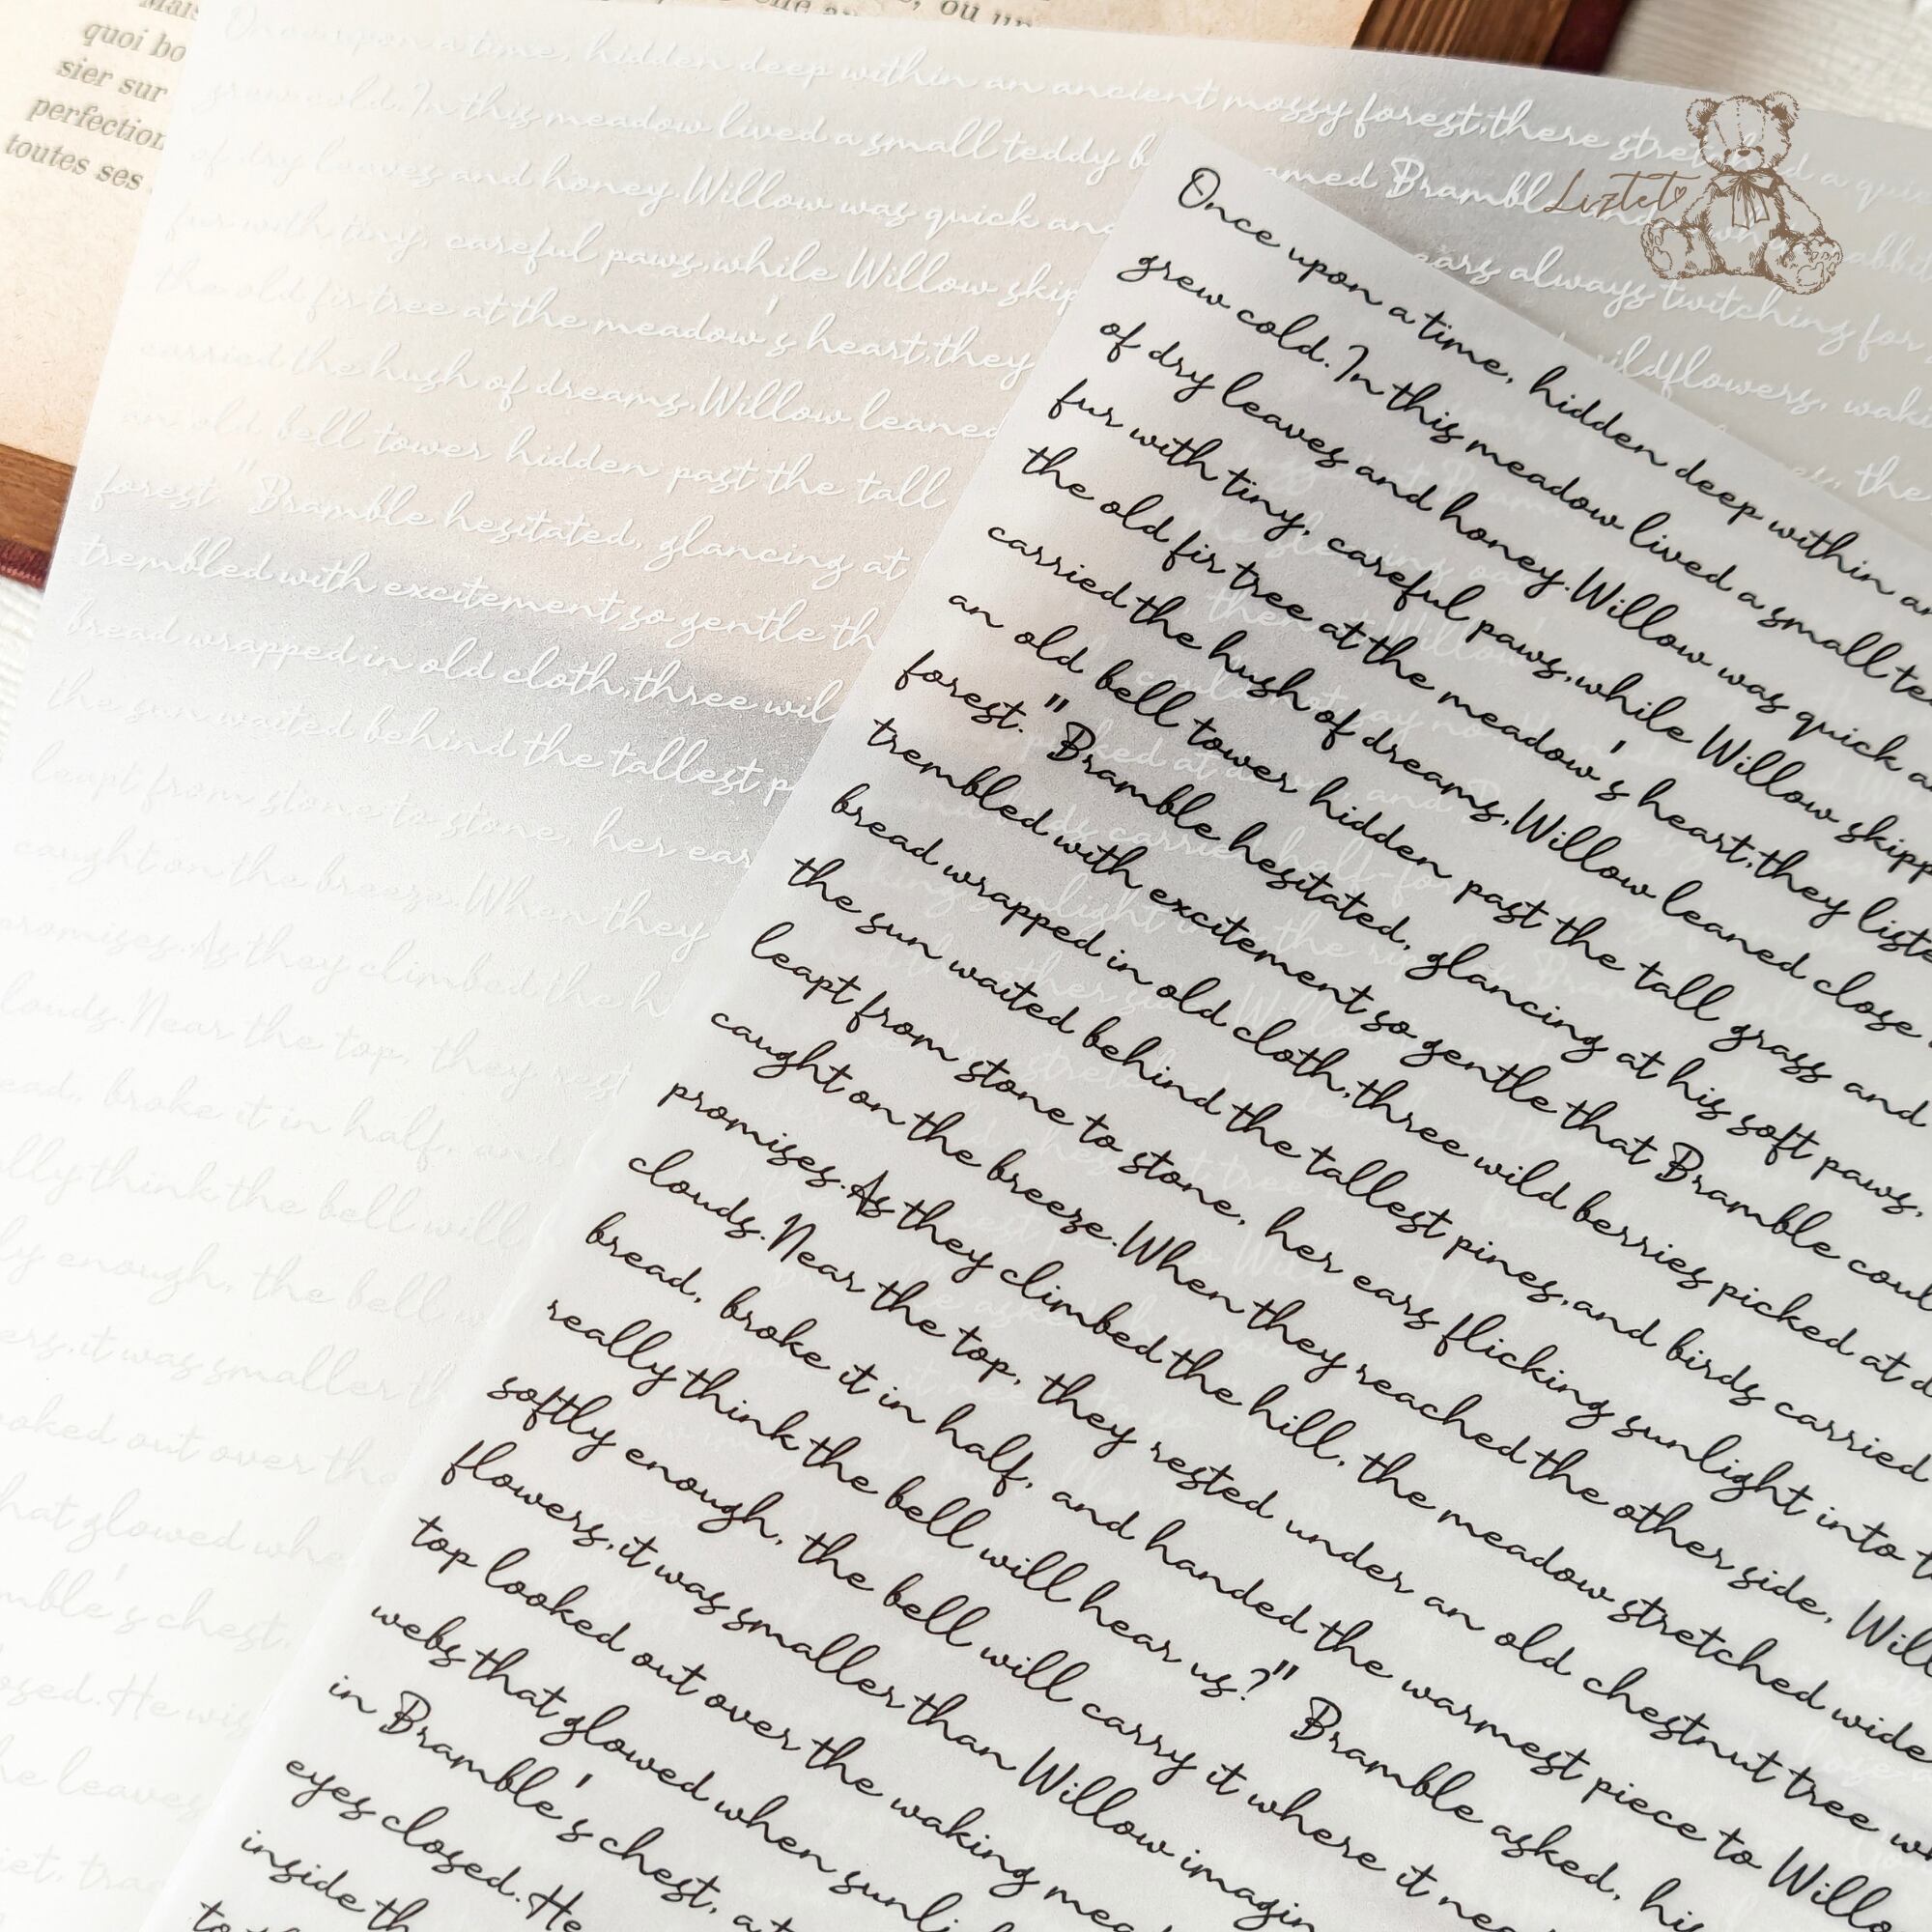 Mais
quoi bo
sier sur
perfection
toutes ses
ou un
Once upon a time, hidden deep within an ancient mossy forest, there stretched a
grew cold. In this meadow lived a small teddy b named Bramble and
of dry leaves and honey. Willow was quick and ears always twitching for
fur with tiny, careful paws, while Willow skip wildflowers,
the old fir tree at the meadow's heart, they the
carried the hush of dreams, Willow leaned
an old bell tower hidden past the tall
forest." Bramble hesitated, glancing at
trembled with excitement so gentle th
bread wrapped in old cloth, three wil
the sun waited behind the tallest p
leapt from stone to stone, her ear
caught on the breeze. When they
promises. As they climbed the h
louds. Near the top, they rest
ead, broke it in half, and
lly think the bell will
ly enough, the bell w
ers, it was smaller th
ooked out over the
hat glowed whe
mble's chest,
osed. He wis
he leaves
iet, tra
Liztet
Once upon a time, hidden deep within an
grew cold. In this meadow lived a small te
of dry leaves and honey. Willow was quick a
fur with tiny, careful paws, while Willow skipp
the old fir tree at the meadow's heart, they liste
carried the hush of dreams, Willow leaned close
an old bell tower hidden past the tall grass and
forest." Bramble hesitated, glancing at his soft paws,
trembled with excitement so gentle that Bramble coul
bread wrapped in old cloth, three wild berries picked at d
the sun waited behind the tallest pines, and birds carried
leapt from stone to stone, her ears flicking sunlight into t
caught on the breeze. When they reached the other side, Will
promises. As they climbed the hill, the meadow stretched wide
clouds. Near the top, they rested under an old chestnut tree w
bread, broke it in half, and handed the warmest piece to Willo
really think the bell will hear us?" Bramble asked, his
softly enough, the bell will carry it where it nee
flowers, it was smaller than Willow imagin
top looked out over the waking mea
webs that glowed when sunli
in Bramble's chest, a
eyes closed. He
inside th
to th